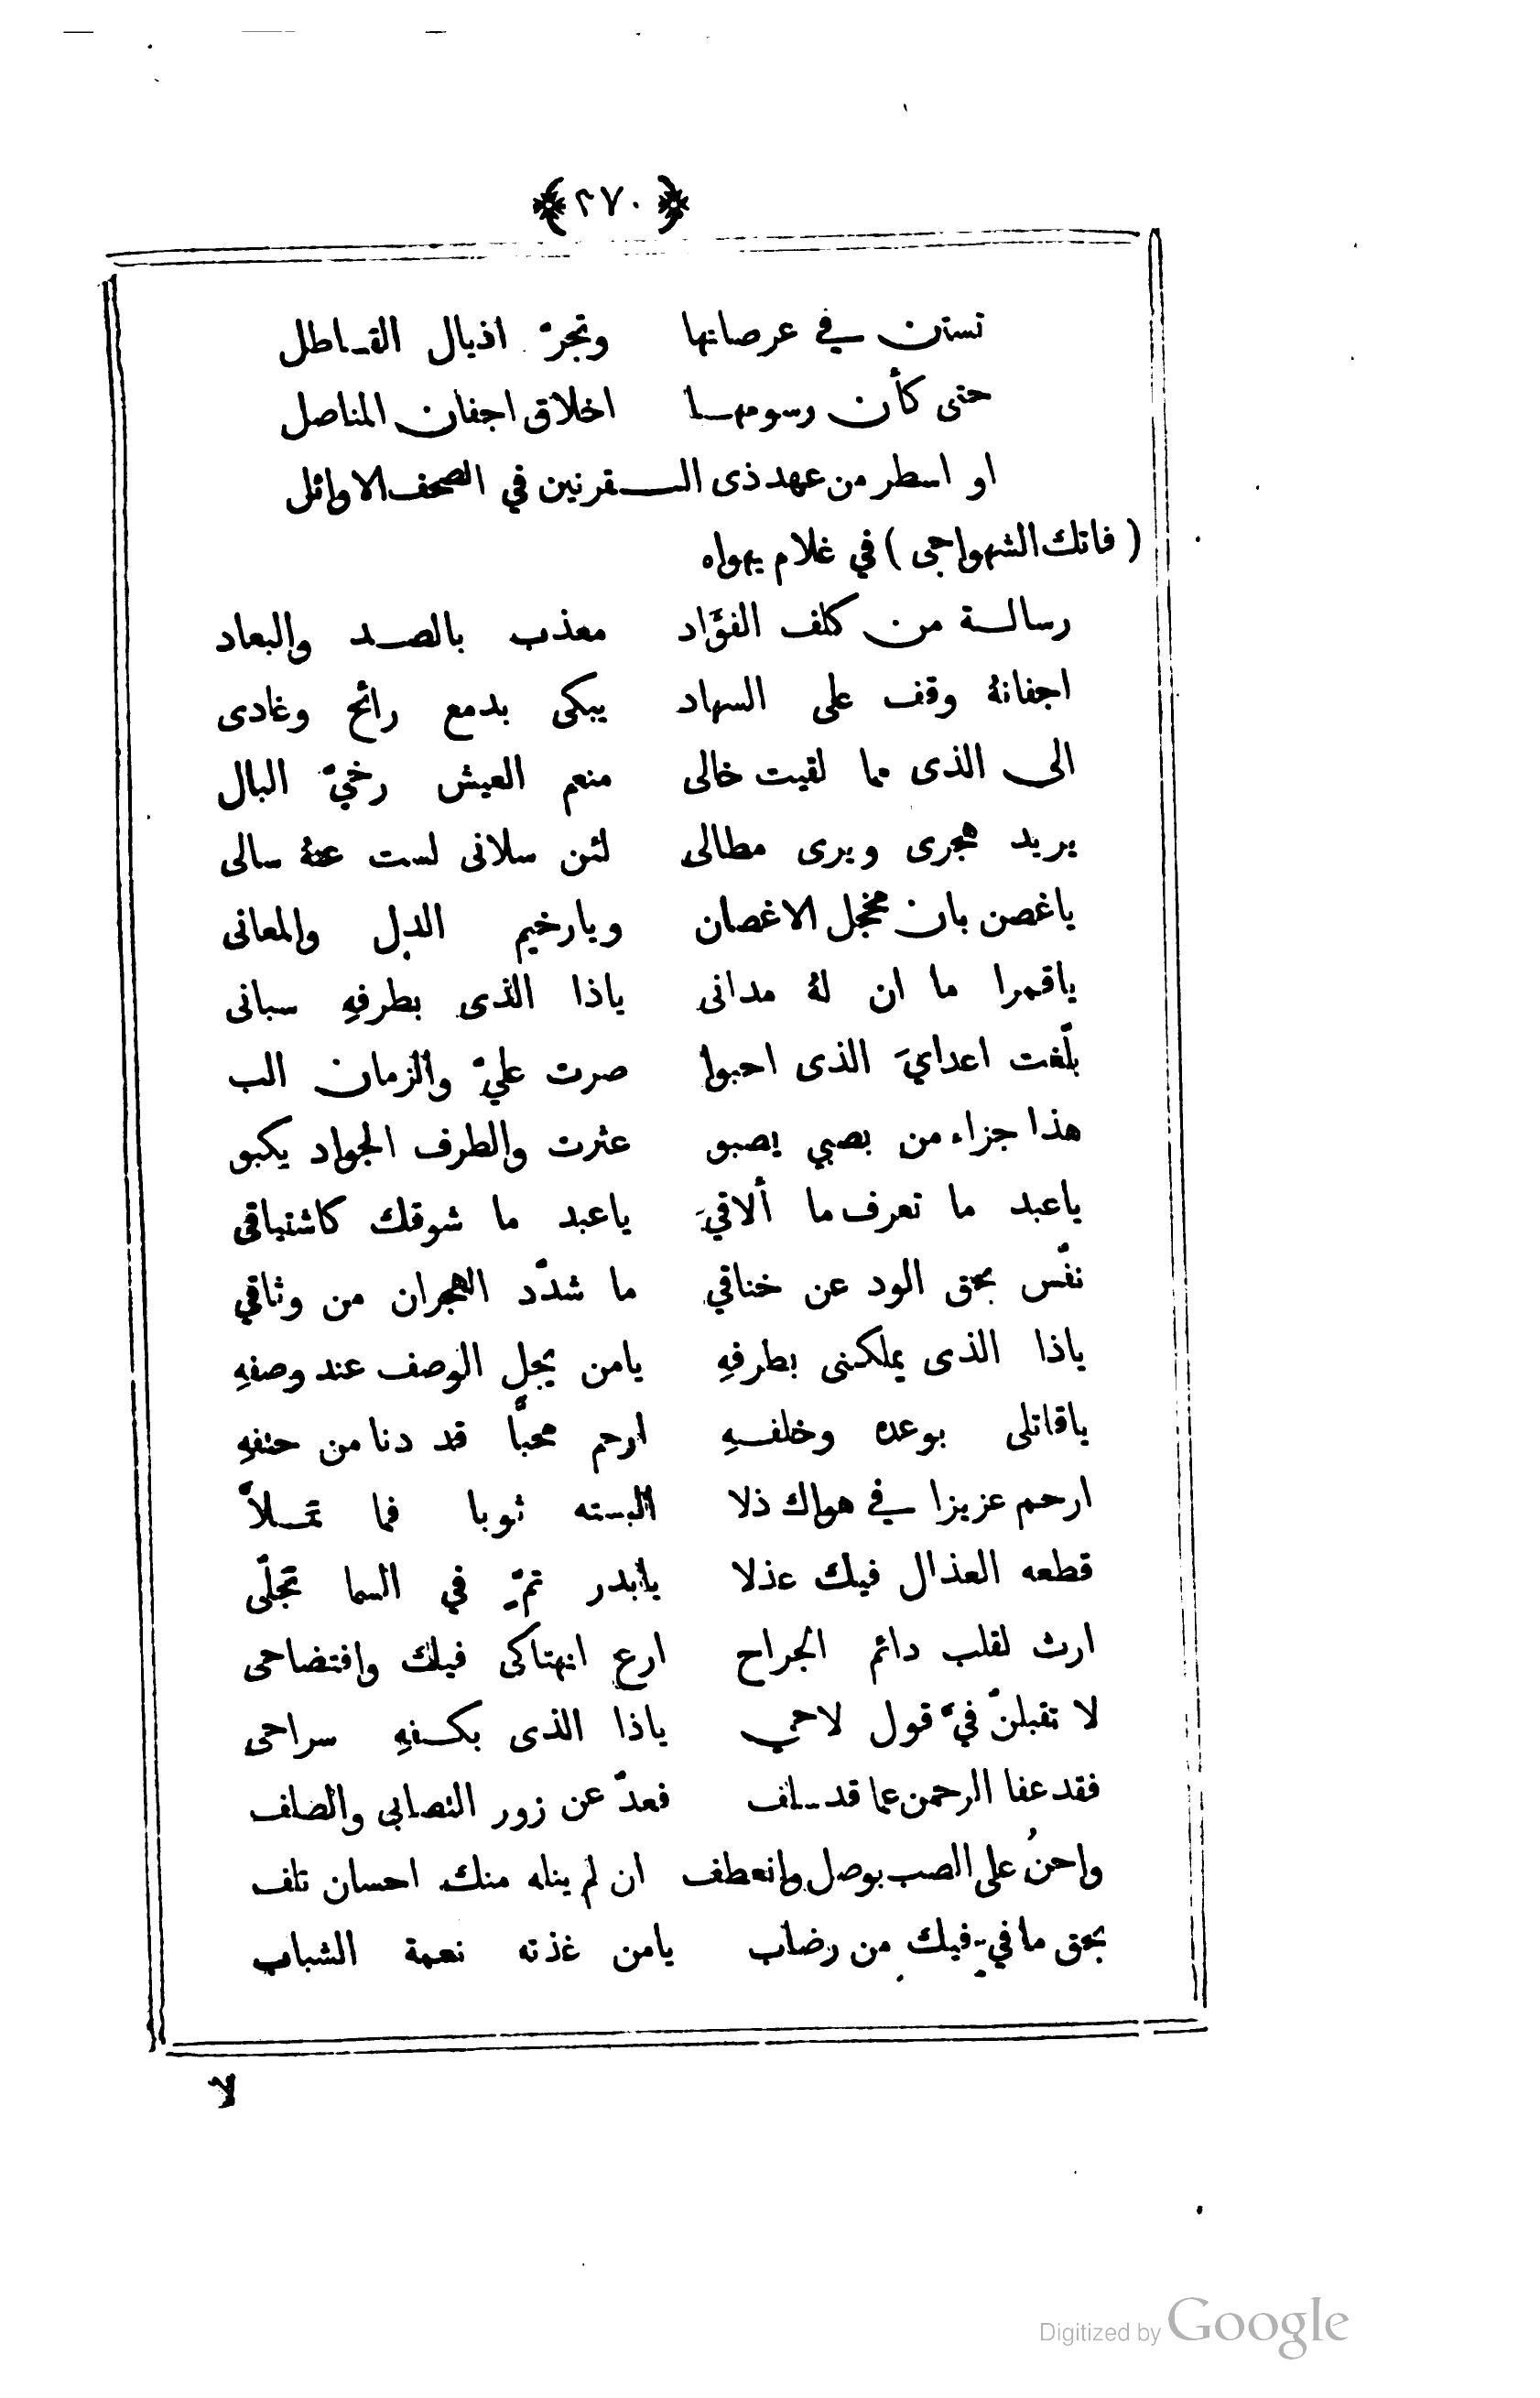 ﴿٢٧٠﴾
تستن في عرصاتها وتجرّ اذيال القساطل
حتى كأن رسومها اخلاق اجفان المناصل
او اسطر من عهد ذى القرنين في الصحف الاوائل
(فاتك الشهواجى) في غلام يهواه
رسالة من كلف الفؤاد معذب بالصد والبعاد
اجفانهُ وقف على السهاد يبكى بدمع رائح وغادى
الى الذى مما لقيت خالى منعم العيش رخيّ البال
يريد هجرى ويرى مطالى لئن سلانى لست عنهُ سالى
ياغصن بان مخجل الاغصان ويارخيم الدل والمعانى
ياقمرا ما ان لهُ مدانى ياذا الذى بطرفهِ سبانى
بلّغت اعدايَ الذى احبوا صرت عليّ والزمان الب
هذا جزاء من بصبي يصبو عثرت والطرف الجواد يكبو
ياعبد ما تعرف ما ألاقي ياعبد ما شوقك كاشتياقى
نفّس بحق الود عن خناقي ما شدّد الهجران من وثاقي
ياذا الذى يملكنى بطرفهِ يامن يجل الوصف عند وصفهِ
ياقاتلى بوعده وخلفهِ ارحم محبًّا قد دنا من حتفهِ
ارحم عزيزا في هواك ذلا البسته ثوبا فما تملاّ
قطعه العذال فيك عذلا يابدر تمّ في السما تجلّى
ارث لقلب دائم الجراح ارع انهتاكى فيك وافتضاحى
لا تقبلنّ فيّ قول لاحي ياذا الذى بكفهِ سراحى
فقد عفا الرحمن عما قد سلف فعدّ عن زور التصابى والصلف
واحنُ على الصب بوصل وانعطف ان لم ينله منك احسان تلف
بحق ما في فيك من رضاب يامن غذته نعمة الشباب
لا
Digitized by Google